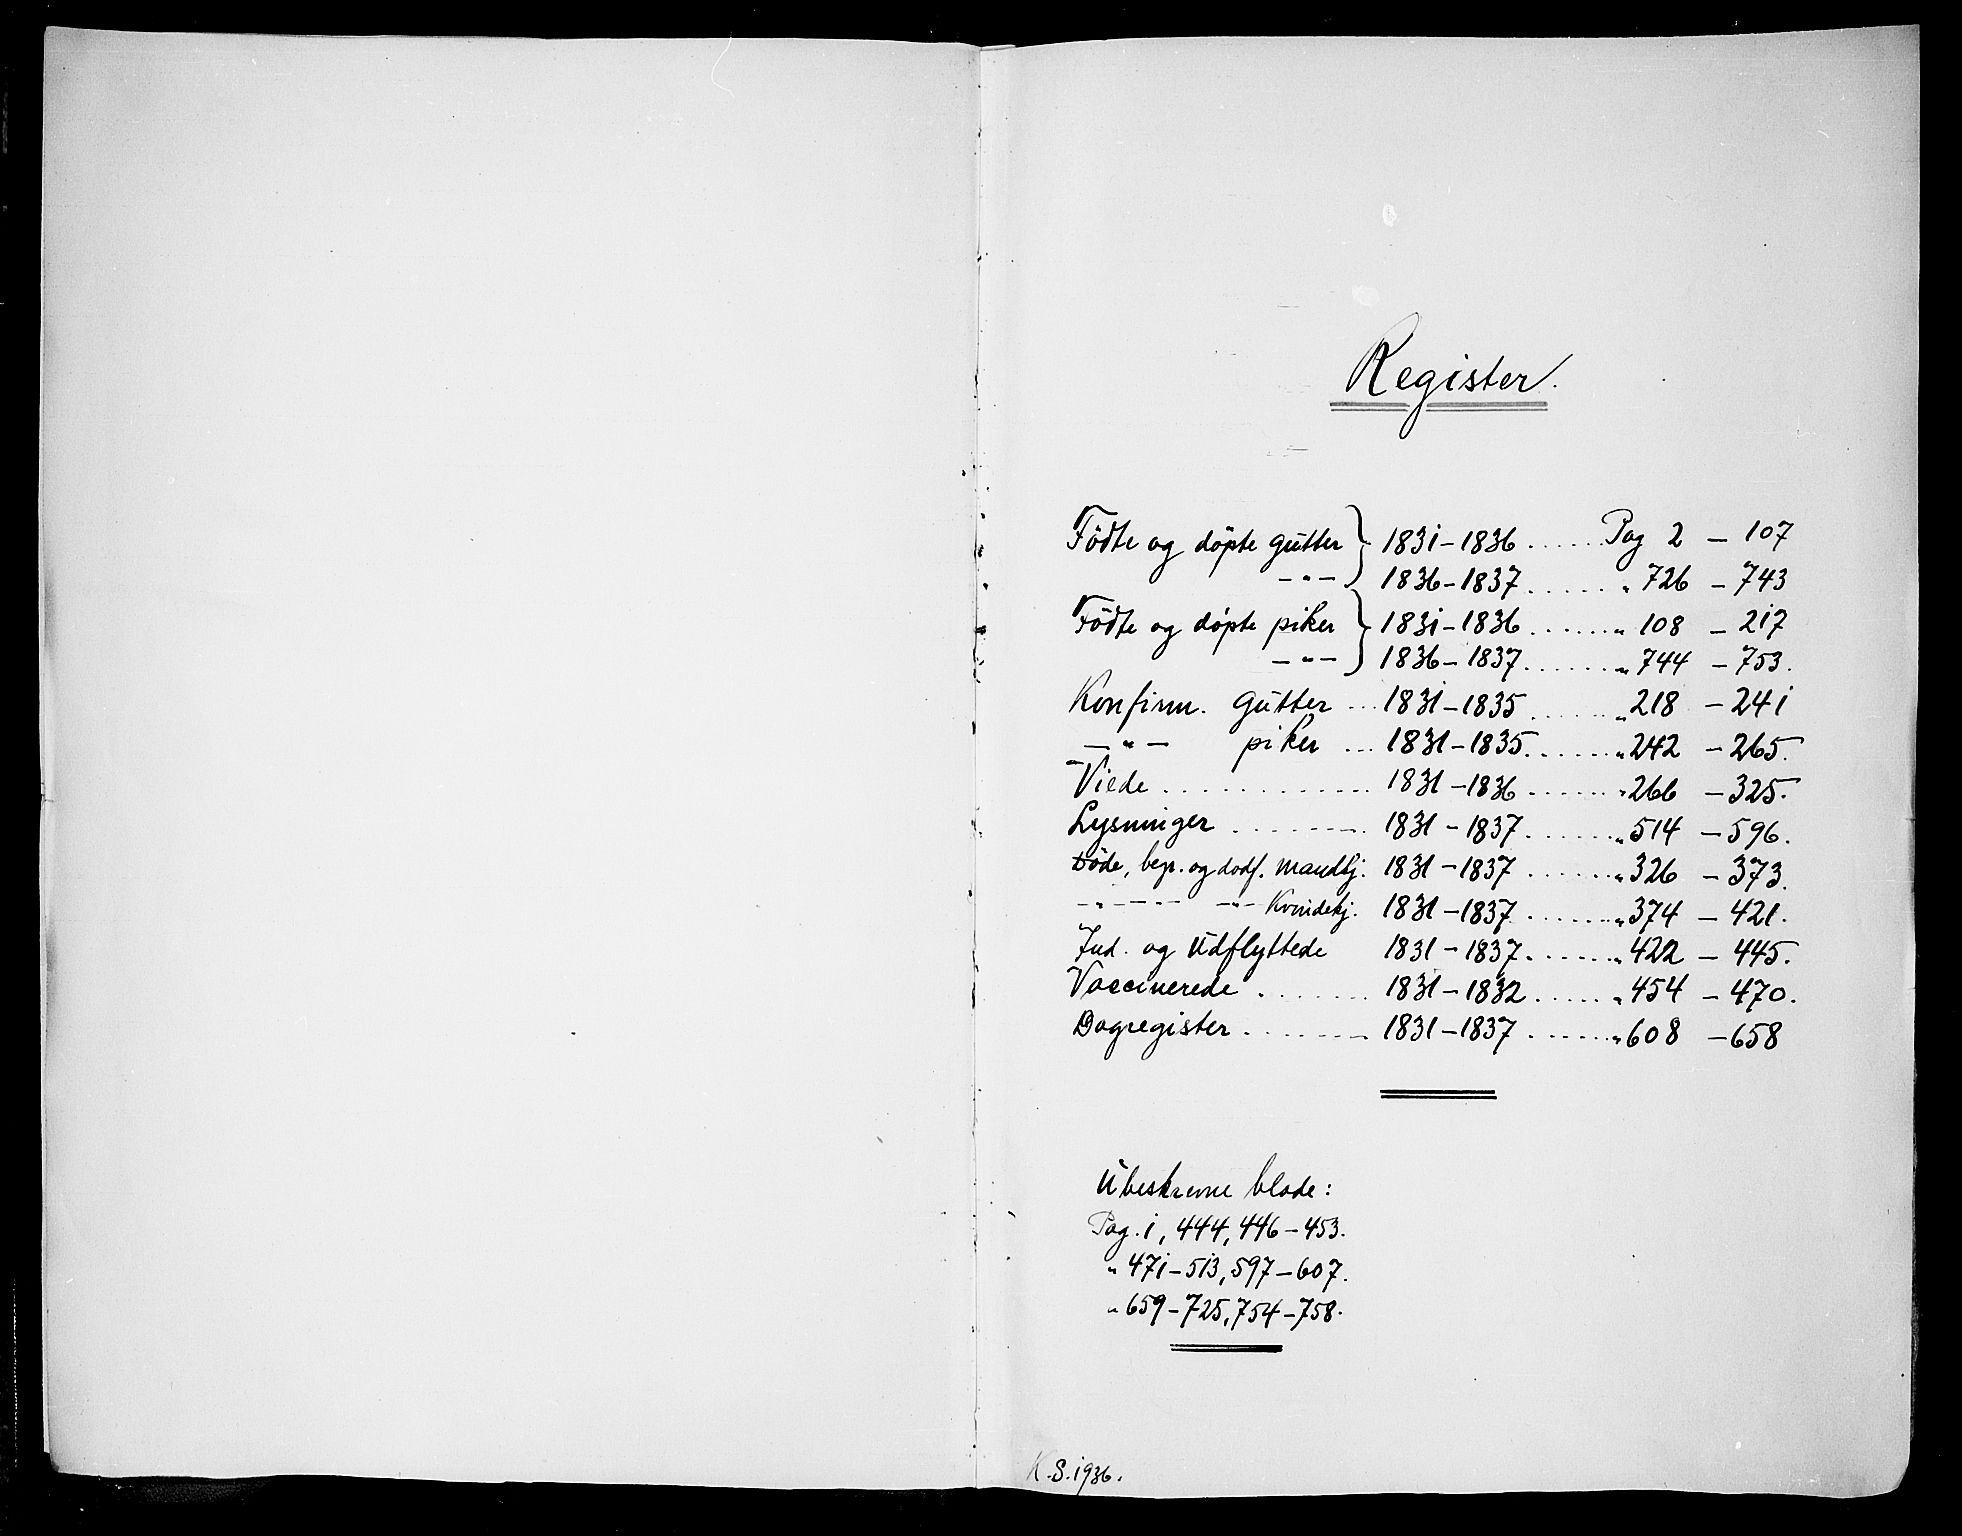 Register.
Födte og döpte gutter } 1831-1836 ...... Pag 2 - 107
-"- 1836-1837 ...... " 726 - 743
Födte og döpte piker } 1831-1836 ...... " 108 - 217
-"- 1836-1837 ...... " 744 - 753.
Konfirm. gutter ... 1831-1835 ...... " 218 - 241
-"- piker ... 1831-1835 ...... " 242 - 265.
Viede ............ 1831-1836 ...... " 266 - 325.
Lysninger ....... 1831-1837 ...... " 514 - 596.
Döde, begr. og dödf. mandkj. 1831-1837 ...... " 326 - 373.
-"--- -"- Kvindekj. 1831-1837 ...... " 374 - 421.
Ind. og Udflyttede 1831-1837 ...... " 422 - 445.
Vaccinerede ....... 1831-1832 ...... " 454 - 470.
Dagregister ....... 1831-1837 ...... " 608 - 658
Ubeskrevne blade:
Pag. 1, 444, 446-453.
" 471-513, 597-607.
" 659-725, 754-758.
K.S. 1936.